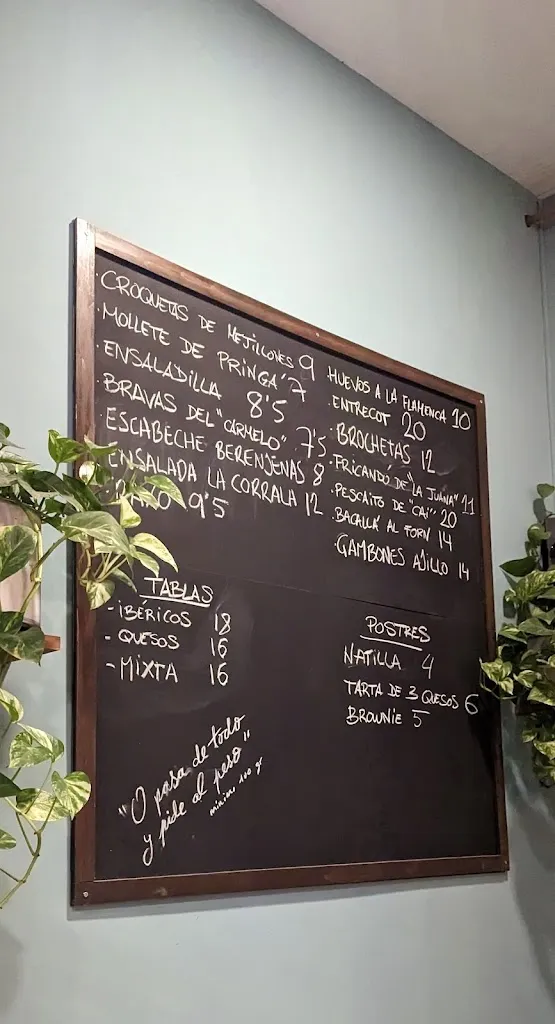 · CROQUETAS DE MEJILLONES 9
· MOLLETE DE PRINGA' 7
· ENSALADILLA 8'5
· BRAVAS DEL "CARMELO" 7'5
· ESCABECHE BERENJENAS 8
ENSALADA LA CORRALA 12
9'5
HUEVOS A LA FLAMENCA 10
· ENTRECOT 20
· BROCHETAS 12
· FRICANDÓ DE "LA JUANA" 11
· PESCAITO DE "CAI" 20
· BACALLÀ AL FORN 14
· GAMBONES AJILLO 14
TABLAS
- IBÉRICOS 18
- QUESOS 16
- MIXTA 16
"O pasa de todo
y pide al peso"
mínim 100 gr
POSTRES
NATILLA 4
TARTA DE 3 QUESOS 6
BROWNIE 5